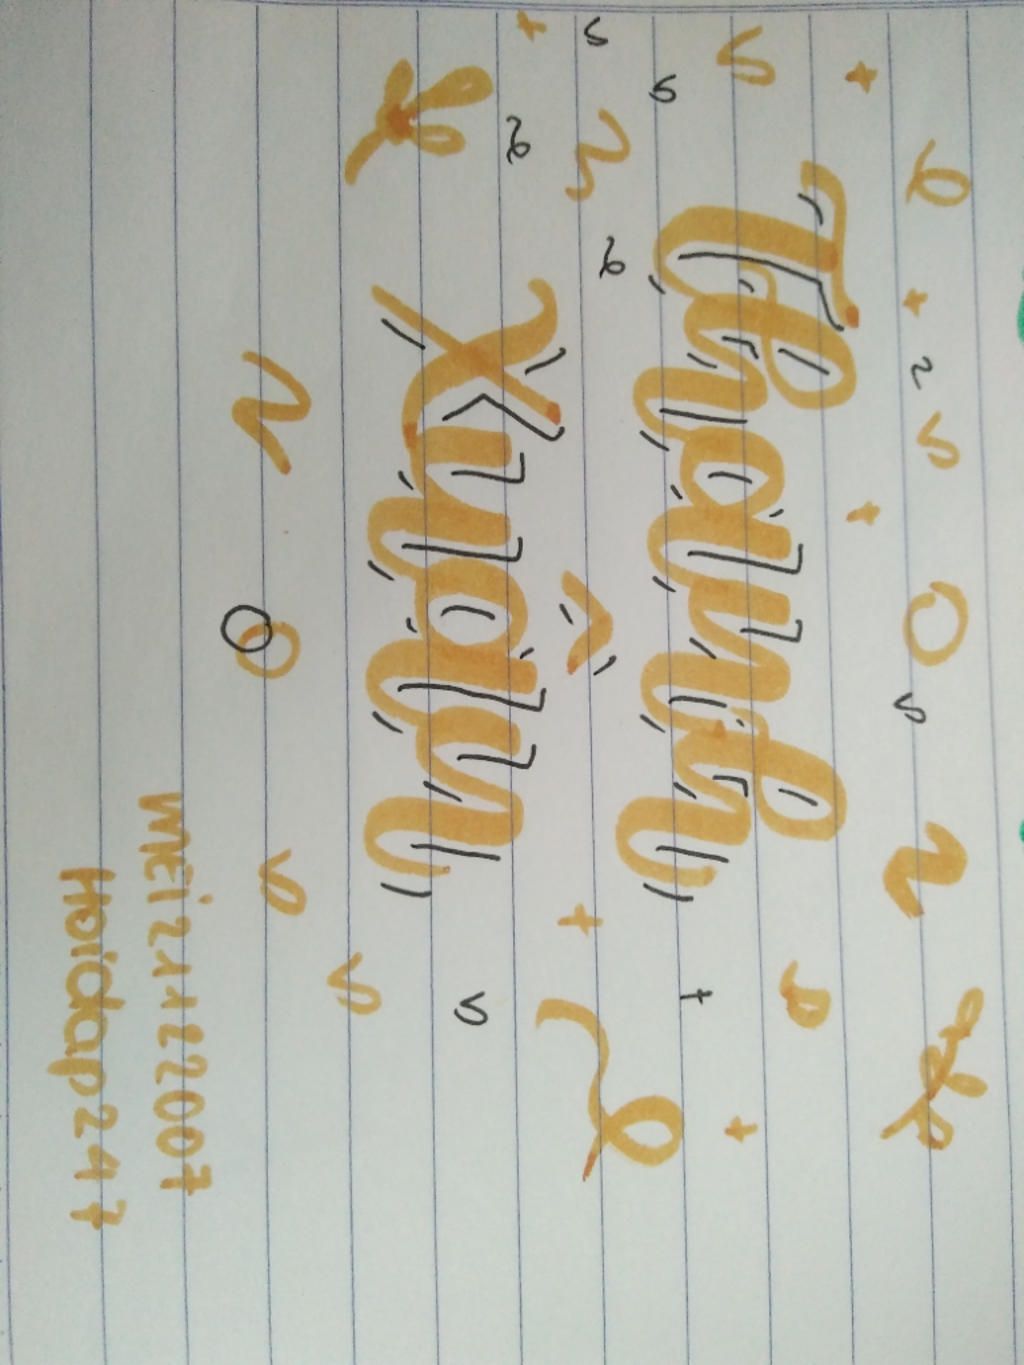 Thanh
Xuân
Mei2112007
Hoidap247